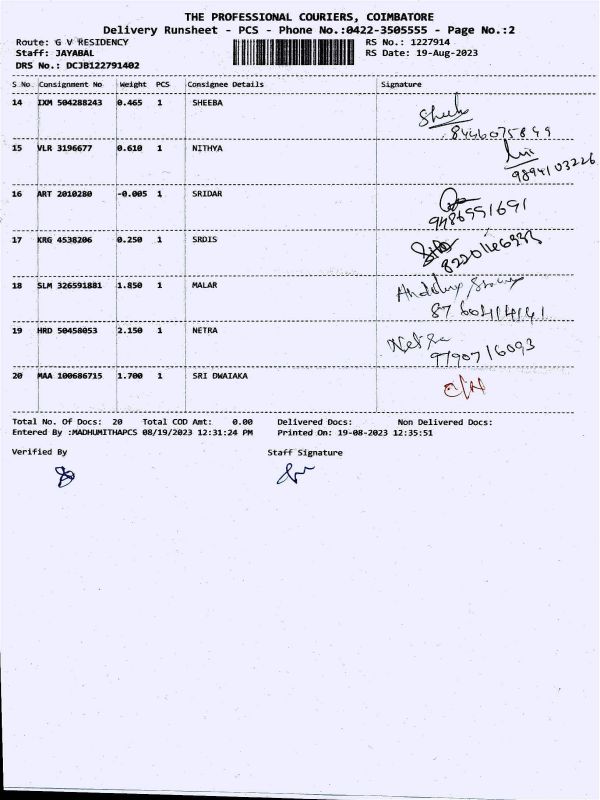 THE PROFESSIONAL COURIERS, COIMBATORE
Delivery Runsheet - PCS - Phone No.:0422-3505555 - Page No.:2
Route: G V RESIDENCY RS No.: 1227914
Staff: JAYABAL RS Date: 19-Aug-2023
DRS No.: DCJB122791402
S No. Consignment No Weight PCS Consignee Details Signature
14 IXM 504288243 0.465 1 SHEEBA
15 VLR 3196677 0.610 1 NITHYA
9894103226
16 ART 2010280 -0.005 1 SRIDAR
9486551691
17 KRG 4538206 0.250 1 SRDIS
18 SLM 326591881 1.850 1 MALAR
19 HRD 50458053 2.150 1 NETRA
Netra
9790716093
20 MAA 100686715 1.700 1 SRI DWAIAKA
Total No. Of Docs: 20 Total COD Amt: 0.00 Delivered Docs: Non Delivered Docs:
Entered By :MADHUMITHAPCS 08/19/2023 12:31:24 PM Printed On: 19-08-2023 12:35:51
Verified By Staff Signature